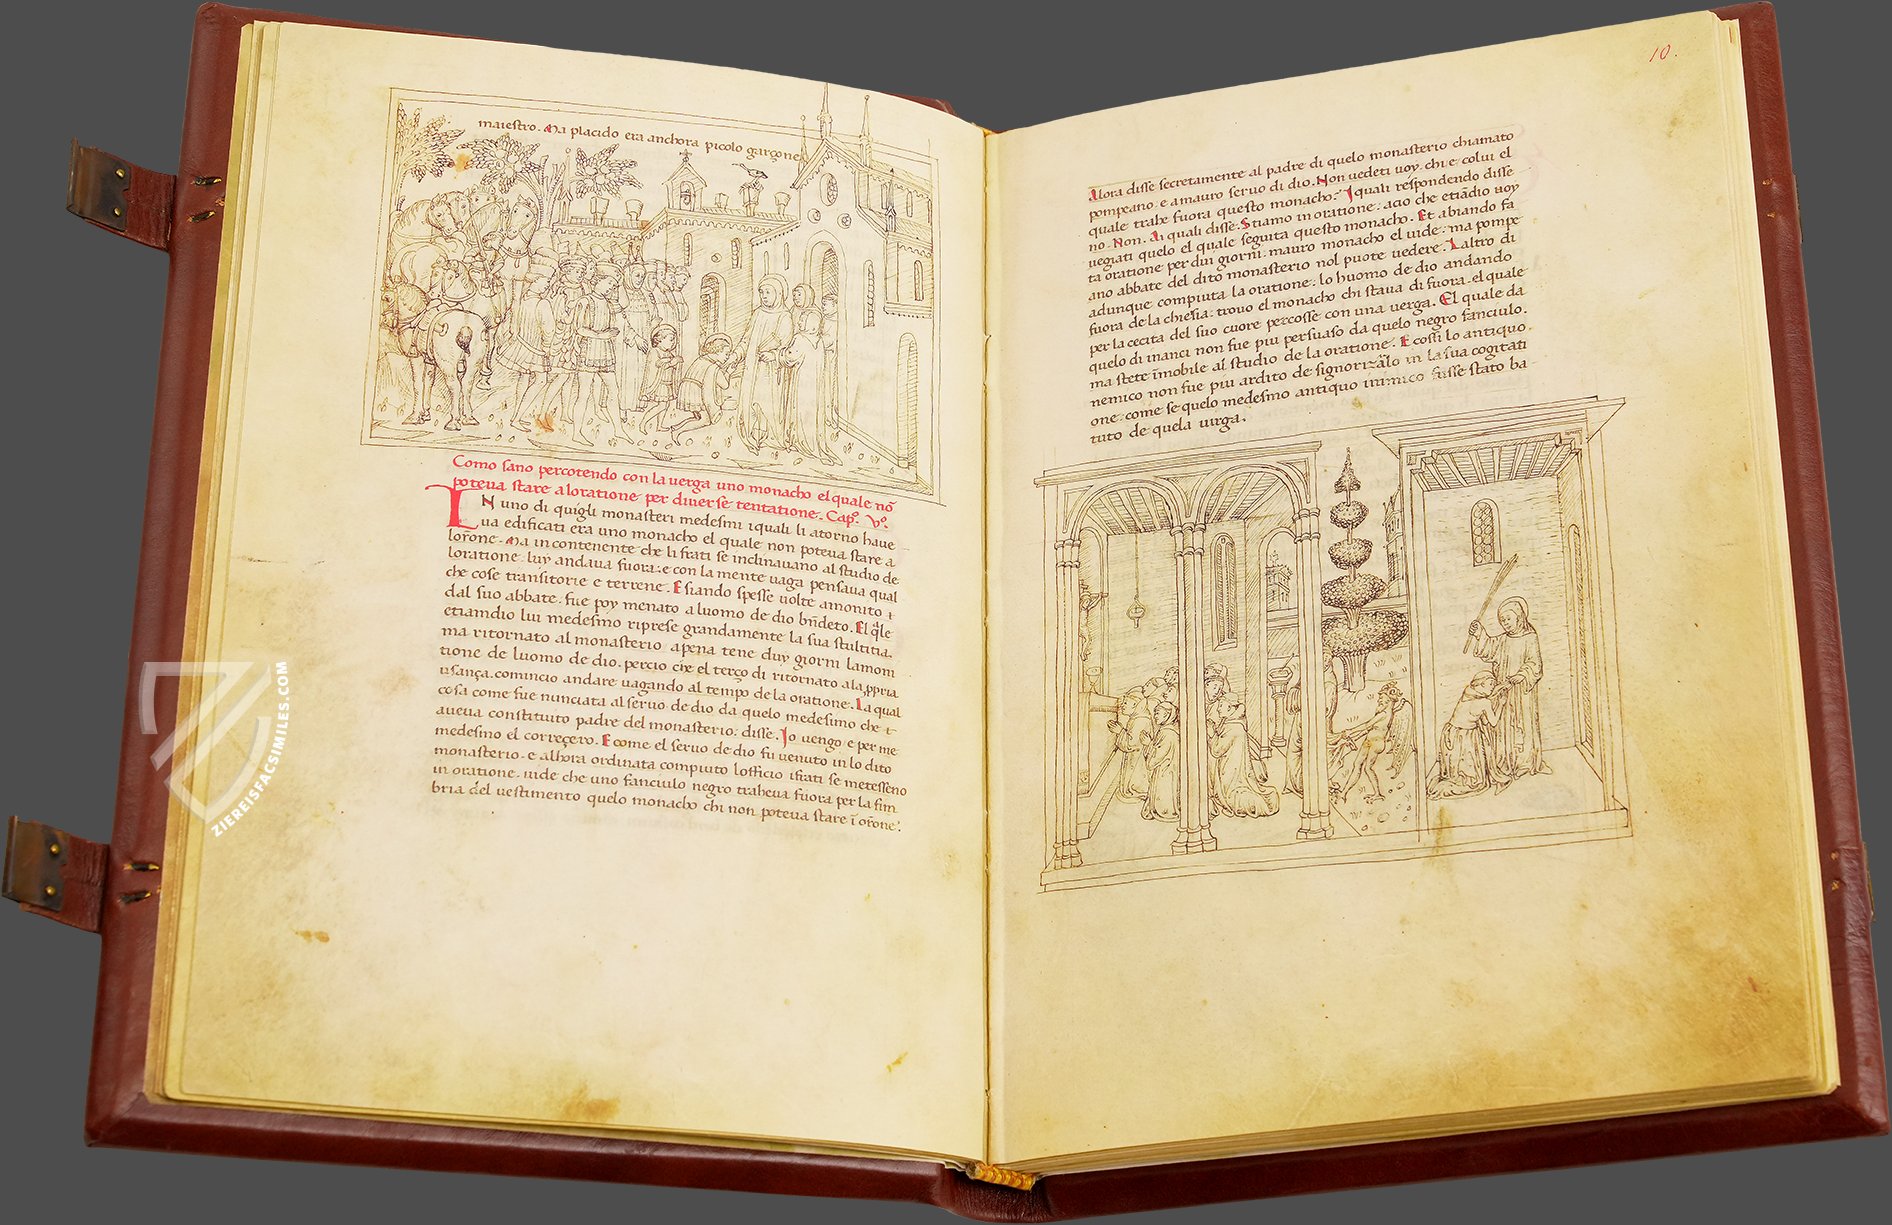 maiestro. Ma placido era anchora picolo garçone
Como sano percotendo con la verga uno monacho el quale nō
poteva stare a loratione per diverse tentatione. Capº. Vº.
IN uno di quigli monasteri medesmi i quali li atorno have
va edificati era uno monacho el quale non poteva stare a
lorone. Ma incontenente che li frati se inclinavano al studio de
loratione. luy andava fuora. e con la mente vaga pensava qual
che cose transitorie e terrene. E siando spesse volte amonito
dal suo abbate. fue poy menato a luomo de dio bndeto. El qle
etiamdio lui medesmo riprese grandamente la sua stultitia.
ma ritornato al monasterio apena tene duy giorni lamoni
tione de luomo de dio. percio che el terço di ritornato ala ppria
usança. comincio andare vagando al tempo de la oratione. La qual
cosa come fue nunciata al servo de dio da quelo medesimo che
aveva constituto padre del monasterio. disse. Io vengo e per me
medesmo el correçero. E come el servo de dio fu venuto in lo dito
monasterio. e alhora ordinata compiuto lofficio i frati se metesseno
in oratione. vide che uno fanciulo negro traheva fuora per la fim
bria del vestimento quelo monacho chi non poteva stare ī orōne.
10.
Alora disse secretamente al padre di quelo monasterio chiamato
pompeano. e a mauro servo di dio. Non vedeti voy. chi e colui el
quale trahe fuora questo monacho. I quali respondendo disse
no. Non. Ai quali disse. Stiamo in oratione. acio che etiādio voy
vegiati quelo el quale seguita questo monacho. Et abiando fa
ta oratione per dui giorni. mauro monacho el vide. ma pompe
ano abbate del dito monasterio nol puote vedere. Laltro di
adunque compiuta la oratione. lo huomo de dio andando
fuora de la chiesia. trovo el monacho chi stava di fuora. el quale
per la cecita del suo cuore percosse con una verga. El quale da
quelo di inanci non fue piu persuaso da quelo negro fanciulo.
ma stete īmobile al studio de la oratione. E cossi lo antiquo
nemico non fue piu ardito de signorizalo in la sua cogitati
one. come se quelo medesmo antiquo inimico fusse stato ba
tuto de quela virga.
ZIEREISFACSIMILES.COM